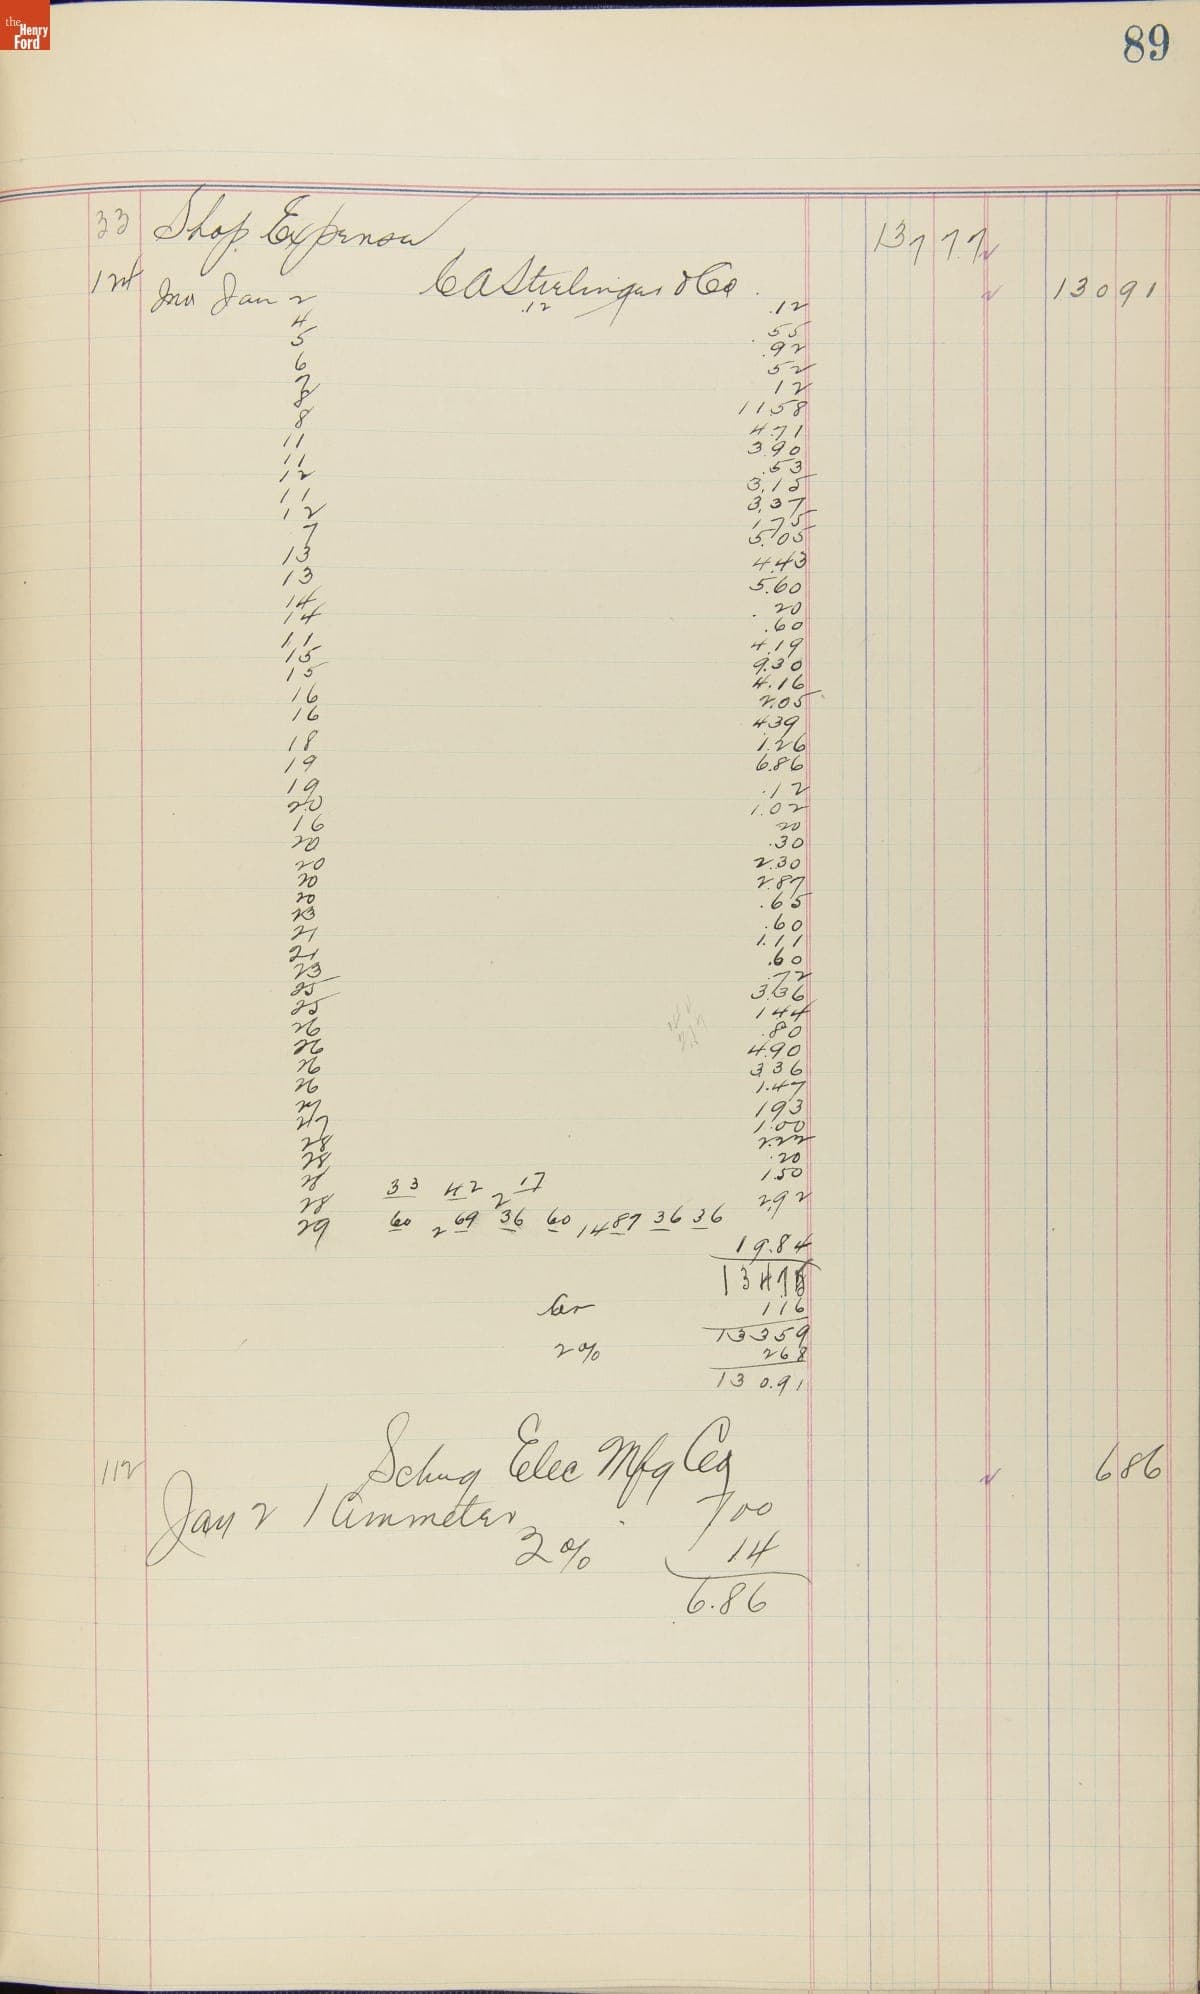 the Henry Ford
89
33 Shop Expense 137 77
124 C A Strelinger & Co 130 91
Inv Jan 2 .12 .12
4 .55
5 .92
6 .52
7 12
8 11 58
8 4.71
11 3.90
11 .53
12 3.15
11 3.37
12 1.75
7 5.05
13 4.43
13 5.60
14 .20
14 .60
11 4.19
15 9.30
15 4.16
16 2.05
16 4 39
18 1.26
19 6.86
19 .12
20 1.02
16 20
20 .30
20 2.30
20 2.87
20 .65
23 .60
21 1.11
21 .60
23 .72
25 3.36
25 1 44
26 .80
26 4.90
26 3 36
26 1.47
27 1 93
27 1.00
28 2.22
28 .20
28 1.50
28 33 42 2 17 2.92
29 60 2 69 36 60 14 87 36 36
19.84
134 75
Cr 1 16
133 59
2% 2 68
130.91
112 Schug Elec Mfg Co 6 86
Jan 2 1 Ammeter 7 00
2% 14
6.86